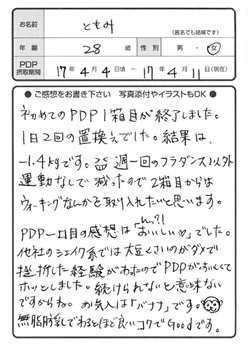 お名前 ともみ
(匿名でも結構です)
年齢 28歳 性別 男・女
PDP摂取期間 17年4月4日頃 ～ 17年4月11日(現在)
●ご感想をお書き下さい 写真添付やイラストもOK●
初めてのPDP1箱目が終了しました。
1日2回の置換えでした。結果は、
-1.4kgです。週一回のフラダンス以外
運動なしで減ったので2箱目からは
ウォーキングなんかを取り入れたいと思います。
ん?!
PDP一口目の感想は「おいしい♡」でした。
他社のシェイク系では大豆くさいのがダメで
挫折した経験があたのでPDPがおいしくて
ホッとしました。続けられないと意味ない
ですからね。お気入は「バナナ」です。
無脂肪乳でわるとほど良いコクでGoodです。